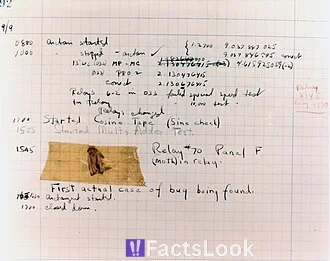 92
9/9
0800 antan started
1000 stopped - antan ✓ { 1.2700 9.037 847 025
9.037 846 995 correct
13"uc (032) MP-MC 4.615925059(-2)
(033) PRO 2 2.130476415
correct 2.130676415
Relays 6-2 in 033 failed special speed test
in relay 10.000 test.
Relays changed
1700 Started Cosine Tape (Sine check)
1525 Started Multi Adder Test.
1545 Relay #70 Panel F
(moth) in relay.
First actual case of bug being found.
antangent started.
1700 closed down.
FactsLook